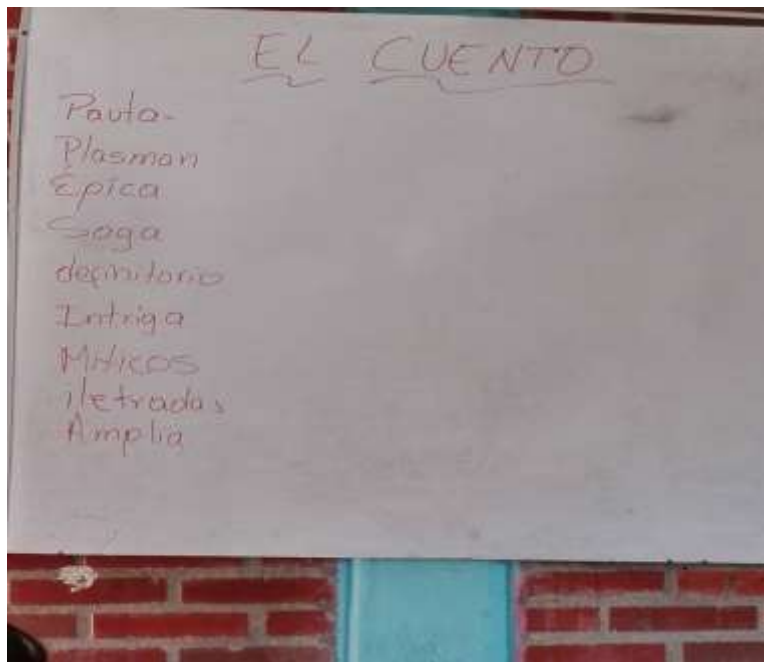 EL CUENTO
Pauta-
Plasman
Épica
Saga
definitorio
Intriga
Míticos
iletradas
Amplia